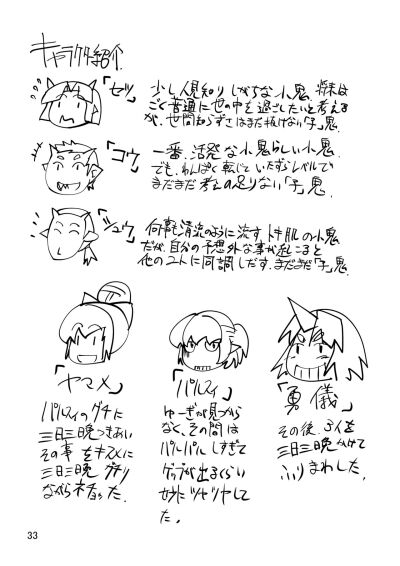 キャラクタ紹介
「ゼツ」
少し人見知りしがちな小鬼。将来は
ごく普通に世の中を過ごしたいと考える
が、世間知らずさはまだ抜けない「子」鬼。
「コウ」
一番、活発な小鬼らしい小鬼。
でも、わんぱく転じていたずらレベルで
まだまだ考えの足りない「子」鬼
「ジュウ」
何事も清流のように流す、トキ肌の小鬼
だが、自分の予想外な事が起こると
他の2人に同調しだす、まだまだ「子」鬼
「ヤマメ」
パルスィのグチに
三日三晩つきあい
その事をキスメに
三日三晩 グチり
ながらネ
「パルスィ」
ゆーぎが見つから
なく、その間は
パルパルしすぎて
ゲップが出るくらい
妙にツヤツヤして
た。
「勇儀」
その後、3人を
三日三晩かけて
ふりまわした。
33